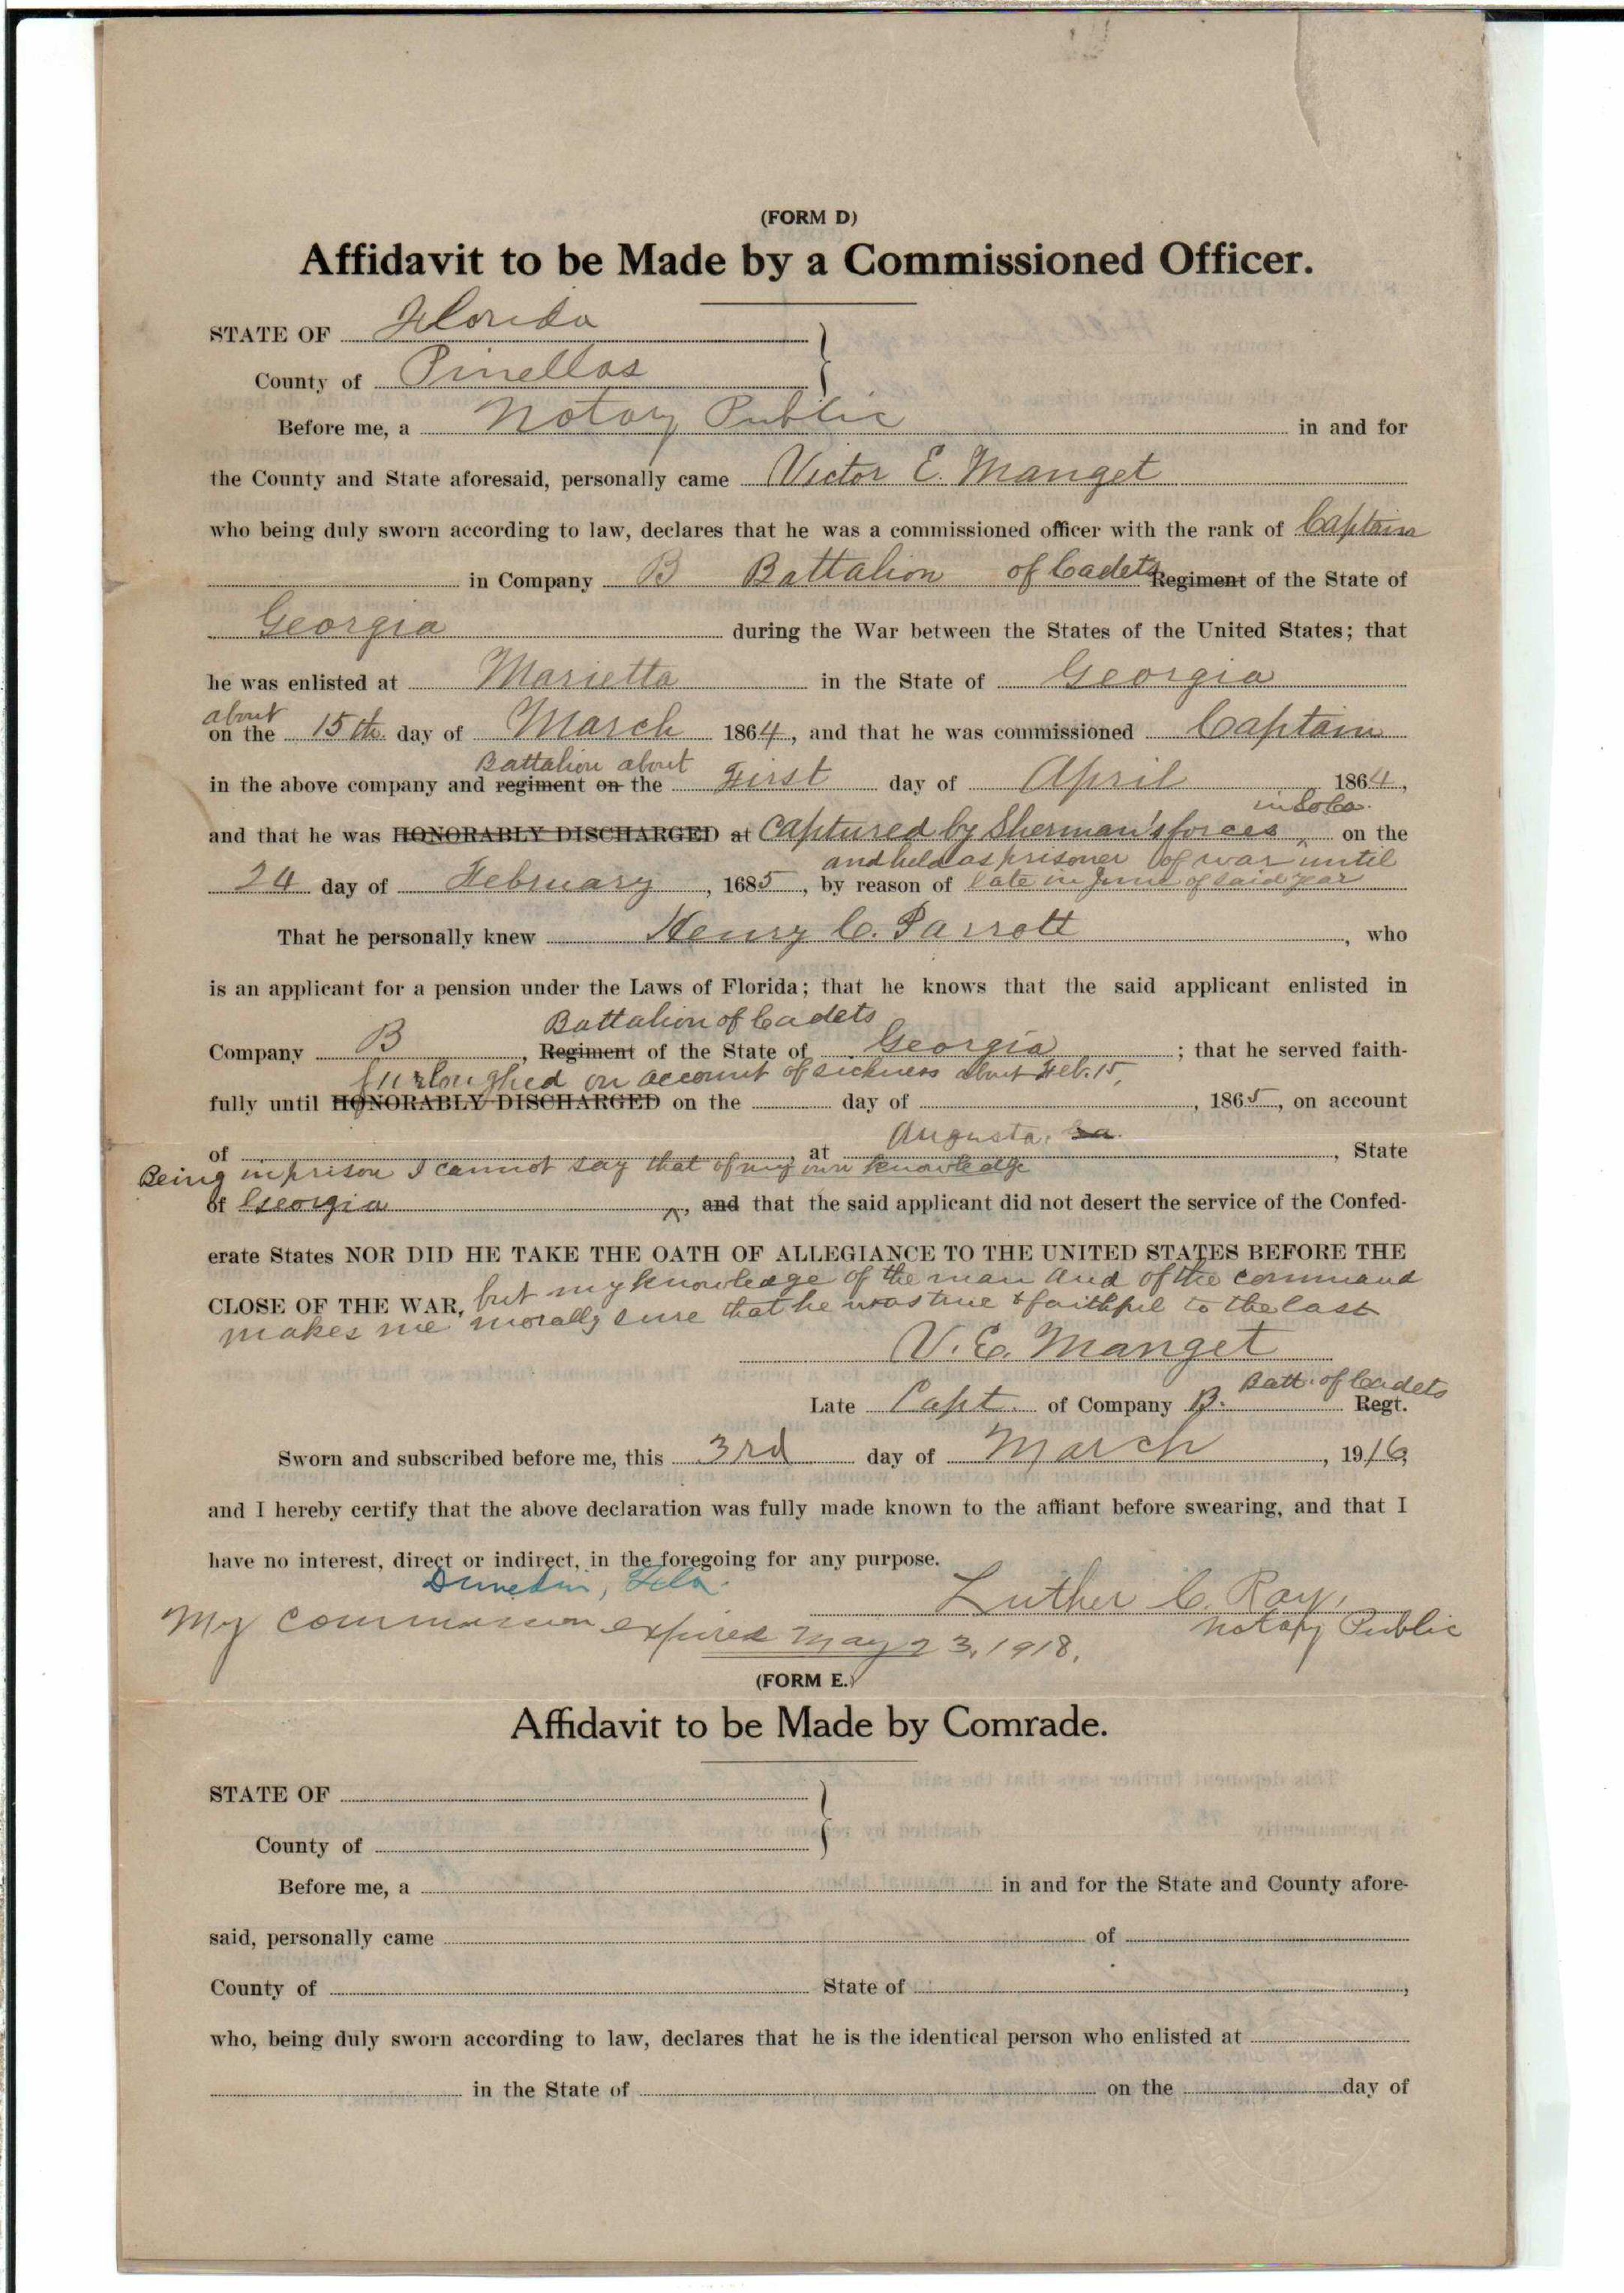 (FORM D)
Affidavit to be Made by a Commissioned Officer.
STATE OF Florida
County of Pinellas
Before me, a Notary Public in and for
the County and State aforesaid, personally came Victor E. Manget
who being duly sworn according to law, declares that he was a commissioned officer with the rank of Captain
in Company B Battalion of Cadets Regiment of the State of
Georgia during the War between the States of the United States; that
he was enlisted at Marietta in the State of Georgia
about
on the 15th. day of March 1864, and that he was commissioned Captain
Battalion about
in the above company and regiment on the First day of April 1864,
in So Ca.
and that he was HONORABLY DISCHARGED at Captured by Sherman's forces on the
and held as prisoner of war until
24 day of February, 1685, by reason of late in June of said year
That he personally knew Henry C. Parrott, who
is an applicant for a pension under the Laws of Florida; that he knows that the said applicant enlisted in
Battalion of Cadets
Company B, Regiment of the State of Georgia; that he served faith-
furloughed on account of sickness about Feb. 15,
fully until HONORABLY DISCHARGED on the day of , 1865, on account
Augusta, Ga.
of , at , State
Being in prison I cannot say that of my own knowledge
of Georgia, and that the said applicant did not desert the service of the Confed-
erate States NOR DID HE TAKE THE OATH OF ALLEGIANCE TO THE UNITED STATES BEFORE THE
CLOSE OF THE WAR, but my knowledge of the man and of the command
makes me morally sure that he was true & faithful to the last
V. E. Manget
Batt. of Cadets
Late Capt. of Company B. Regt.
Sworn and subscribed before me, this 3rd day of March, 1916,
and I hereby certify that the above declaration was fully made known to the affiant before swearing, and that I
have no interest, direct or indirect, in the foregoing for any purpose.
Dunedin, Fla.
Luther C. Ray,
Notary Public
My commission expires May 23, 1918.
(FORM E.)
Affidavit to be Made by Comrade.
STATE OF
County of
Before me, a in and for the State and County afore-
said, personally came of
County of State of ,
who, being duly sworn according to law, declares that he is the identical person who enlisted at
in the State of on the day of